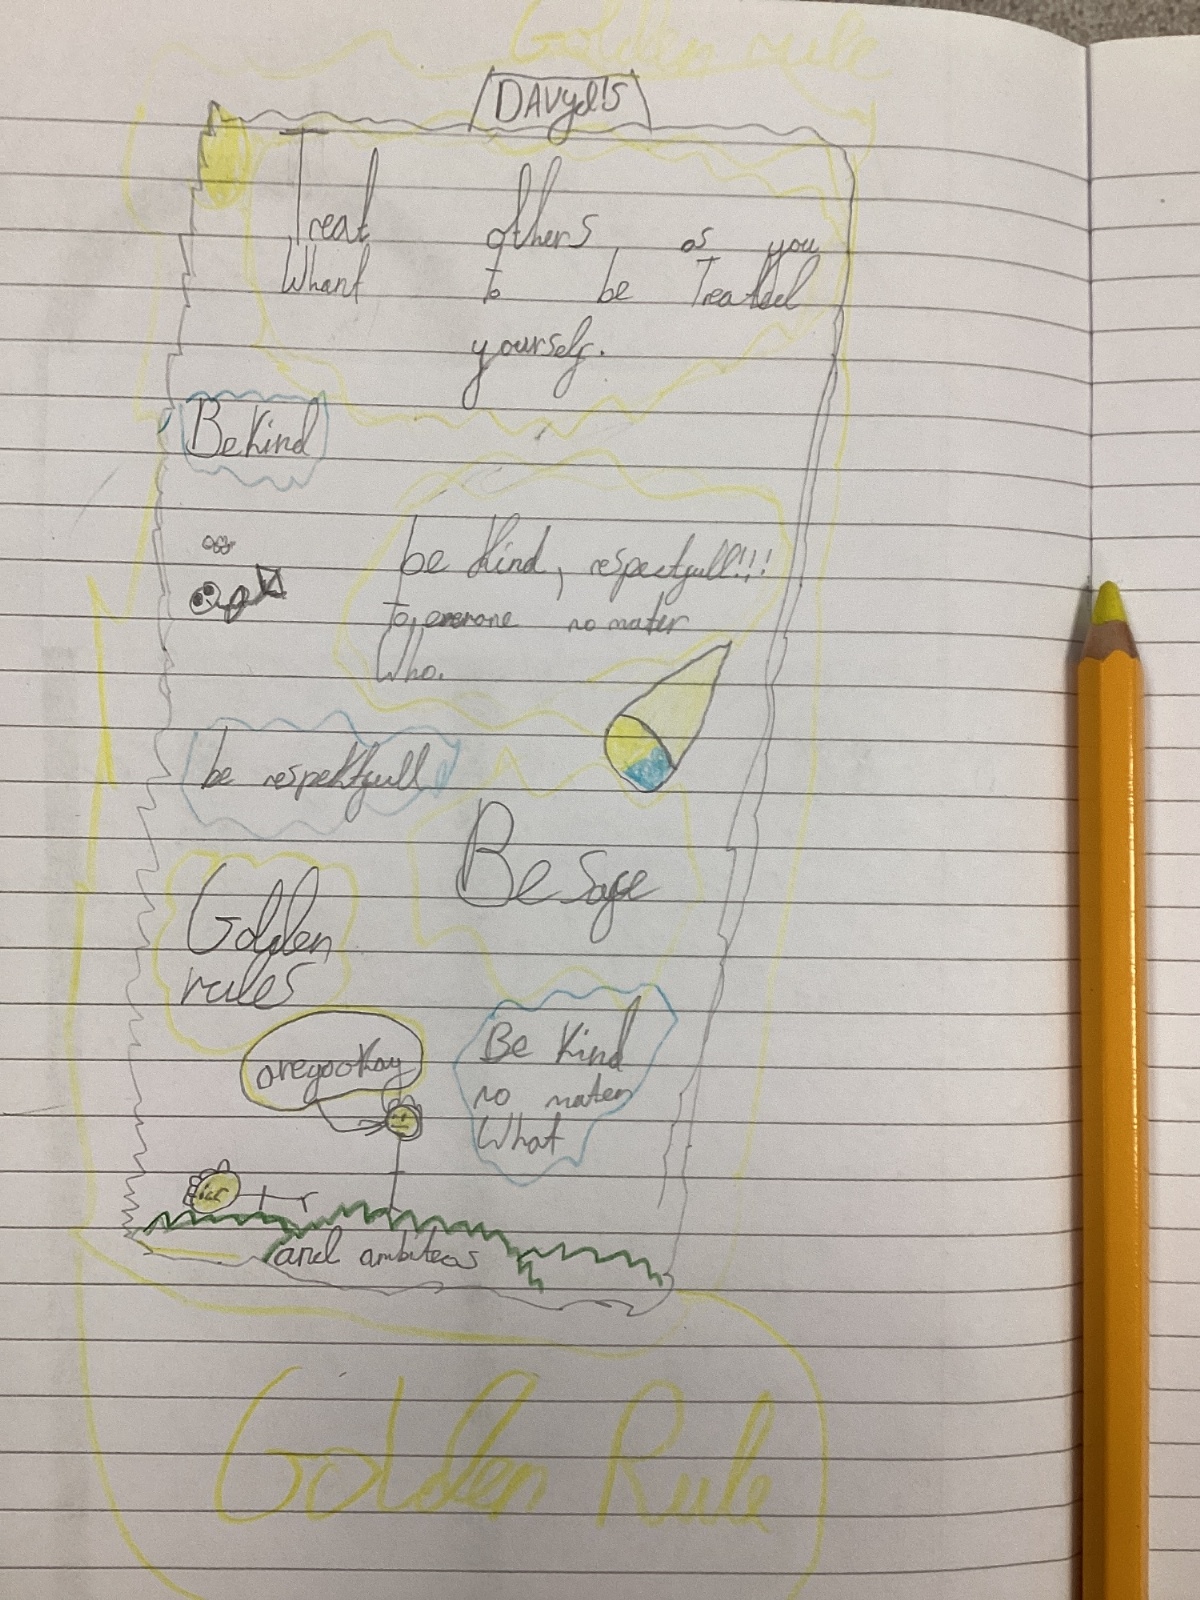 Golden rule
DAVyd!S
Treat others, as you
Whant To be Treated
yourself.
Be Kind
be Kind, respectfull!!!
To, everone no mater
Who.
be respektfull
Be Safe
Golden
rules
areyooKay
Be Kind
no mater
What
and ambiteas
Golden Rule